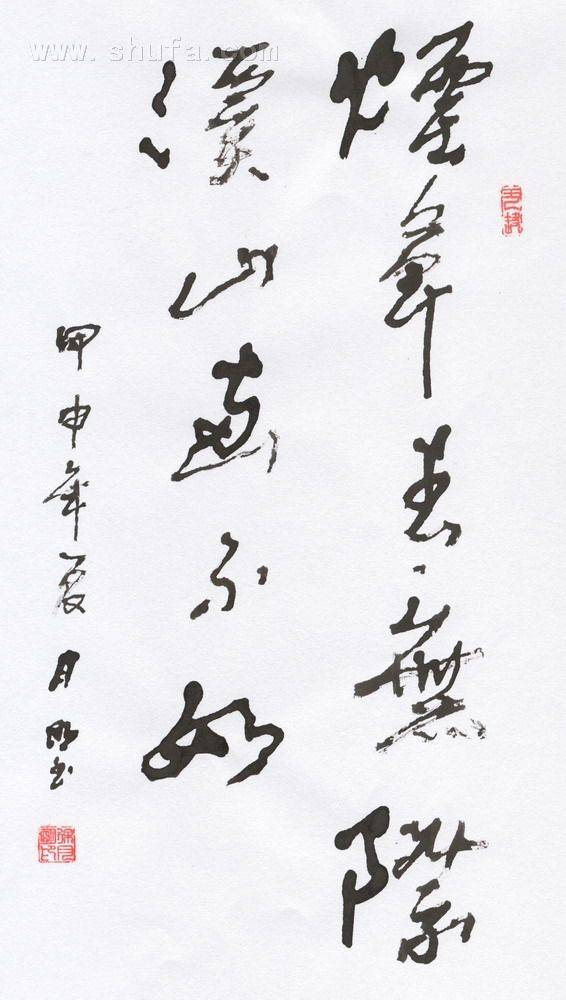 www.shufa.com
煙無際
溪山畫不如
甲申年夏月明書